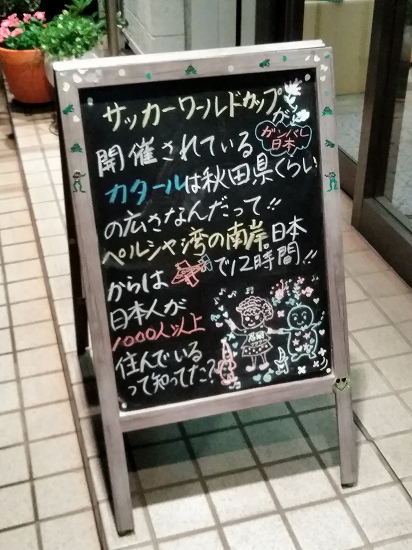 サッカーワールドカップが
ガンバレ
日本
開催されている
カタールは秋田県くらい
の広さなんだって!!
ペルシャ湾の南岸日本
からは で12時間!!
日本人が
1000人以上
住んでいる
って知ってた?